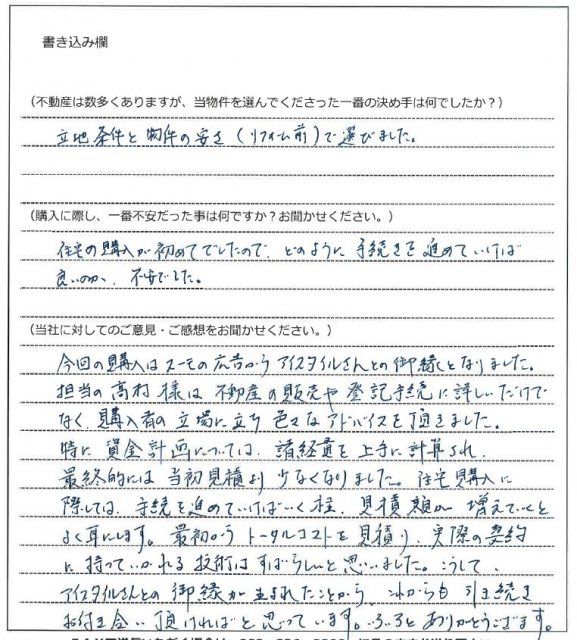 書き込み欄
(不動産は数多くありますが、当物件を選んでくださった一番の決め手は何でしたか?)
立地条件と物件の安さ(リフォーム前)で選びました。
(購入に際し、一番不安だった事は何ですか?お聞かせください。)
住宅の購入が初めてでしたので、どのように手続きを進めていけば
良いのか、不安でした。
(当社に対してのご意見・ご感想をお聞かせください。)
今回の購入はスーモの広告からアイスタイルさんとの御縁となりました。
担当の高村様は不動産の販売や登記手続に詳しいだけで
なく、購入者の立場に立ち色々なアドバイスを頂きました。
特に資金計画については、諸経費を上手に計算され、
最終的には当初見積より少なくなりました。住宅購入に
際しては、手続を進めていけばいく程、見積額が増えていくと
よく耳にします。最初からトータルコストを見積り、実際の契約
に持っていかれる技術はすばらしいと思いました。こうして、
アイスタイルさんとの御縁が生まれたことから、これからも引き続き
お付き合い頂ければと思っています。ありがとうございます。